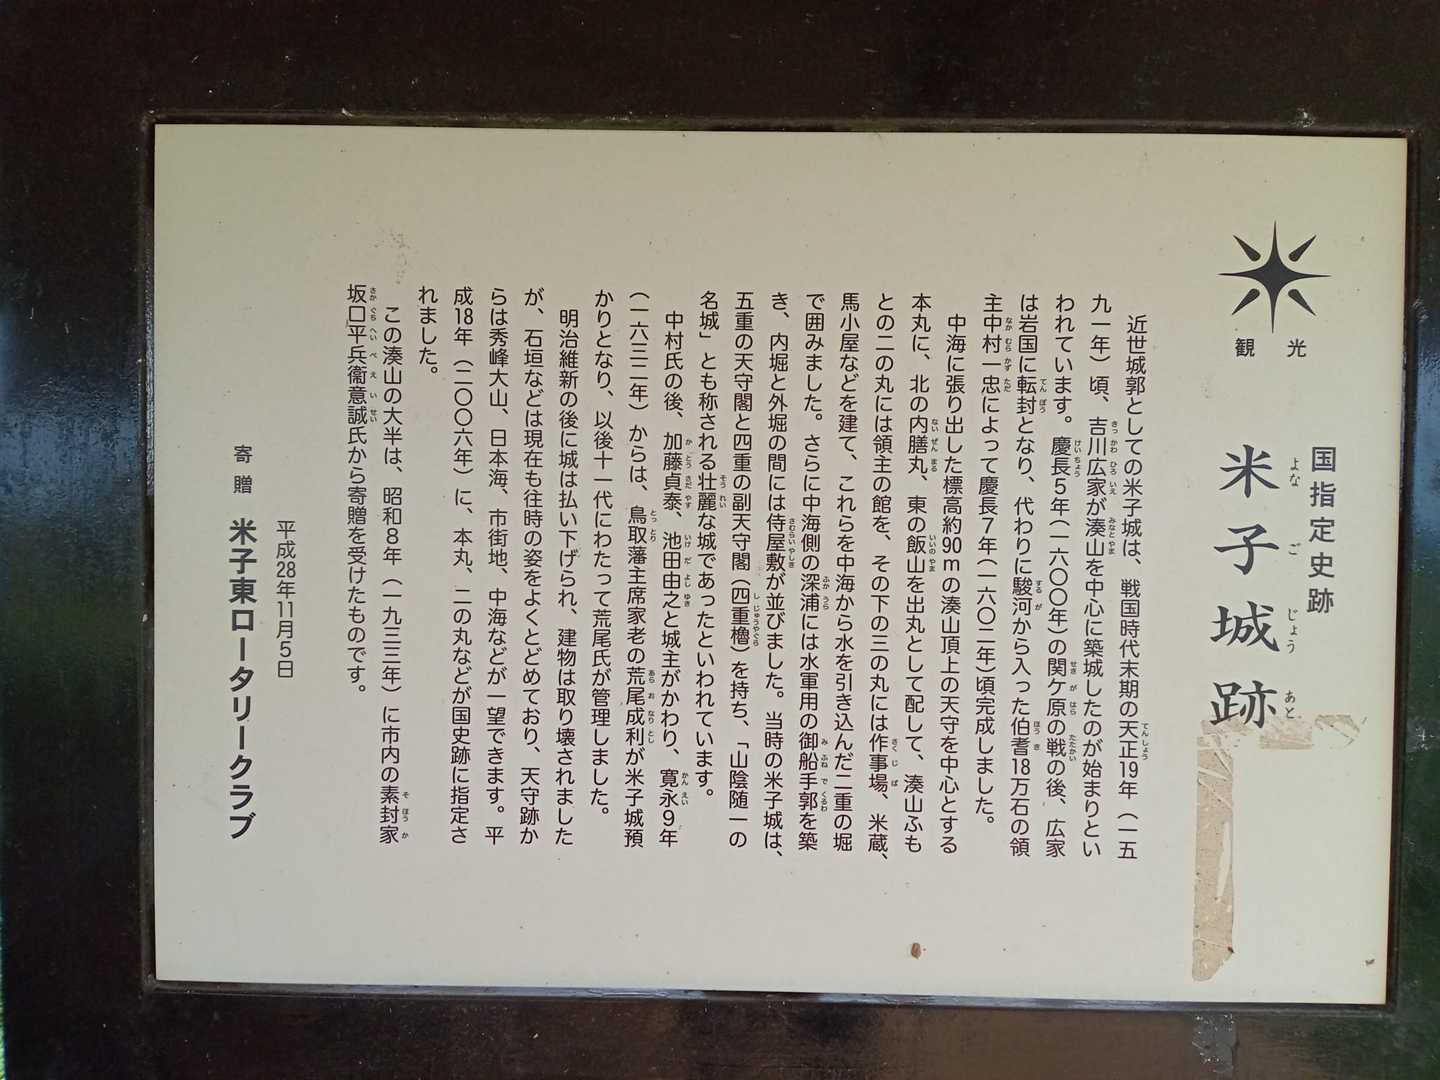 観光
国指定史跡
米子城跡
よなごじょうあと
近世城郭としての米子城は、戦国時代末期の天正19年（一五
九一年）頃、吉川広家が湊山を中心に築城したのが始まりとい
われています。慶長5年（一六〇〇年）の関ケ原の戦の後、広家
は岩国に転封となり、代わりに駿河から入った伯耆18万石の領
主中村一忠によって慶長7年（一六〇二年）頃完成しました。
中海に張り出した標高約90mの湊山頂上の天守を中心とする
本丸に、北の内膳丸、東の飯山を出丸として配して、湊山ふも
との二の丸には領主の館を、その下の三の丸には作事場、米蔵、
馬小屋などを建て、これらを中海から水を引き込んだ二重の堀
で囲みました。さらに中海側の深浦には水軍用の御船手郭を築
き、内堀と外堀の間には侍屋敷が並びました。当時の米子城は、
五重の天守閣と四重の副天守閣（四重櫓）を持ち、「山陰随一の
名城」とも称される壮麗な城であったといわれています。
中村氏の後、加藤貞泰、池田由之と城主がかわり、寛永9年
（一六三二年）からは、鳥取藩主席家老の荒尾成利が米子城預
かりとなり、以後十一代にわたって荒尾氏が管理しました。
明治維新の後に城は払い下げられ、建物は取り壊されました
が、石垣などは現在も往時の姿をよくとどめており、天守跡か
らは秀峰大山、日本海、市街地、中海などが一望できます。平
成18年（二〇〇六年）に、本丸、二の丸などが国史跡に指定さ
れました。
この湊山の大半は、昭和8年（一九三三年）に市内の素封家
坂口平兵衞意誠氏から寄贈を受けたものです。
平成28年11月5日
寄贈 米子東ロータリークラブ